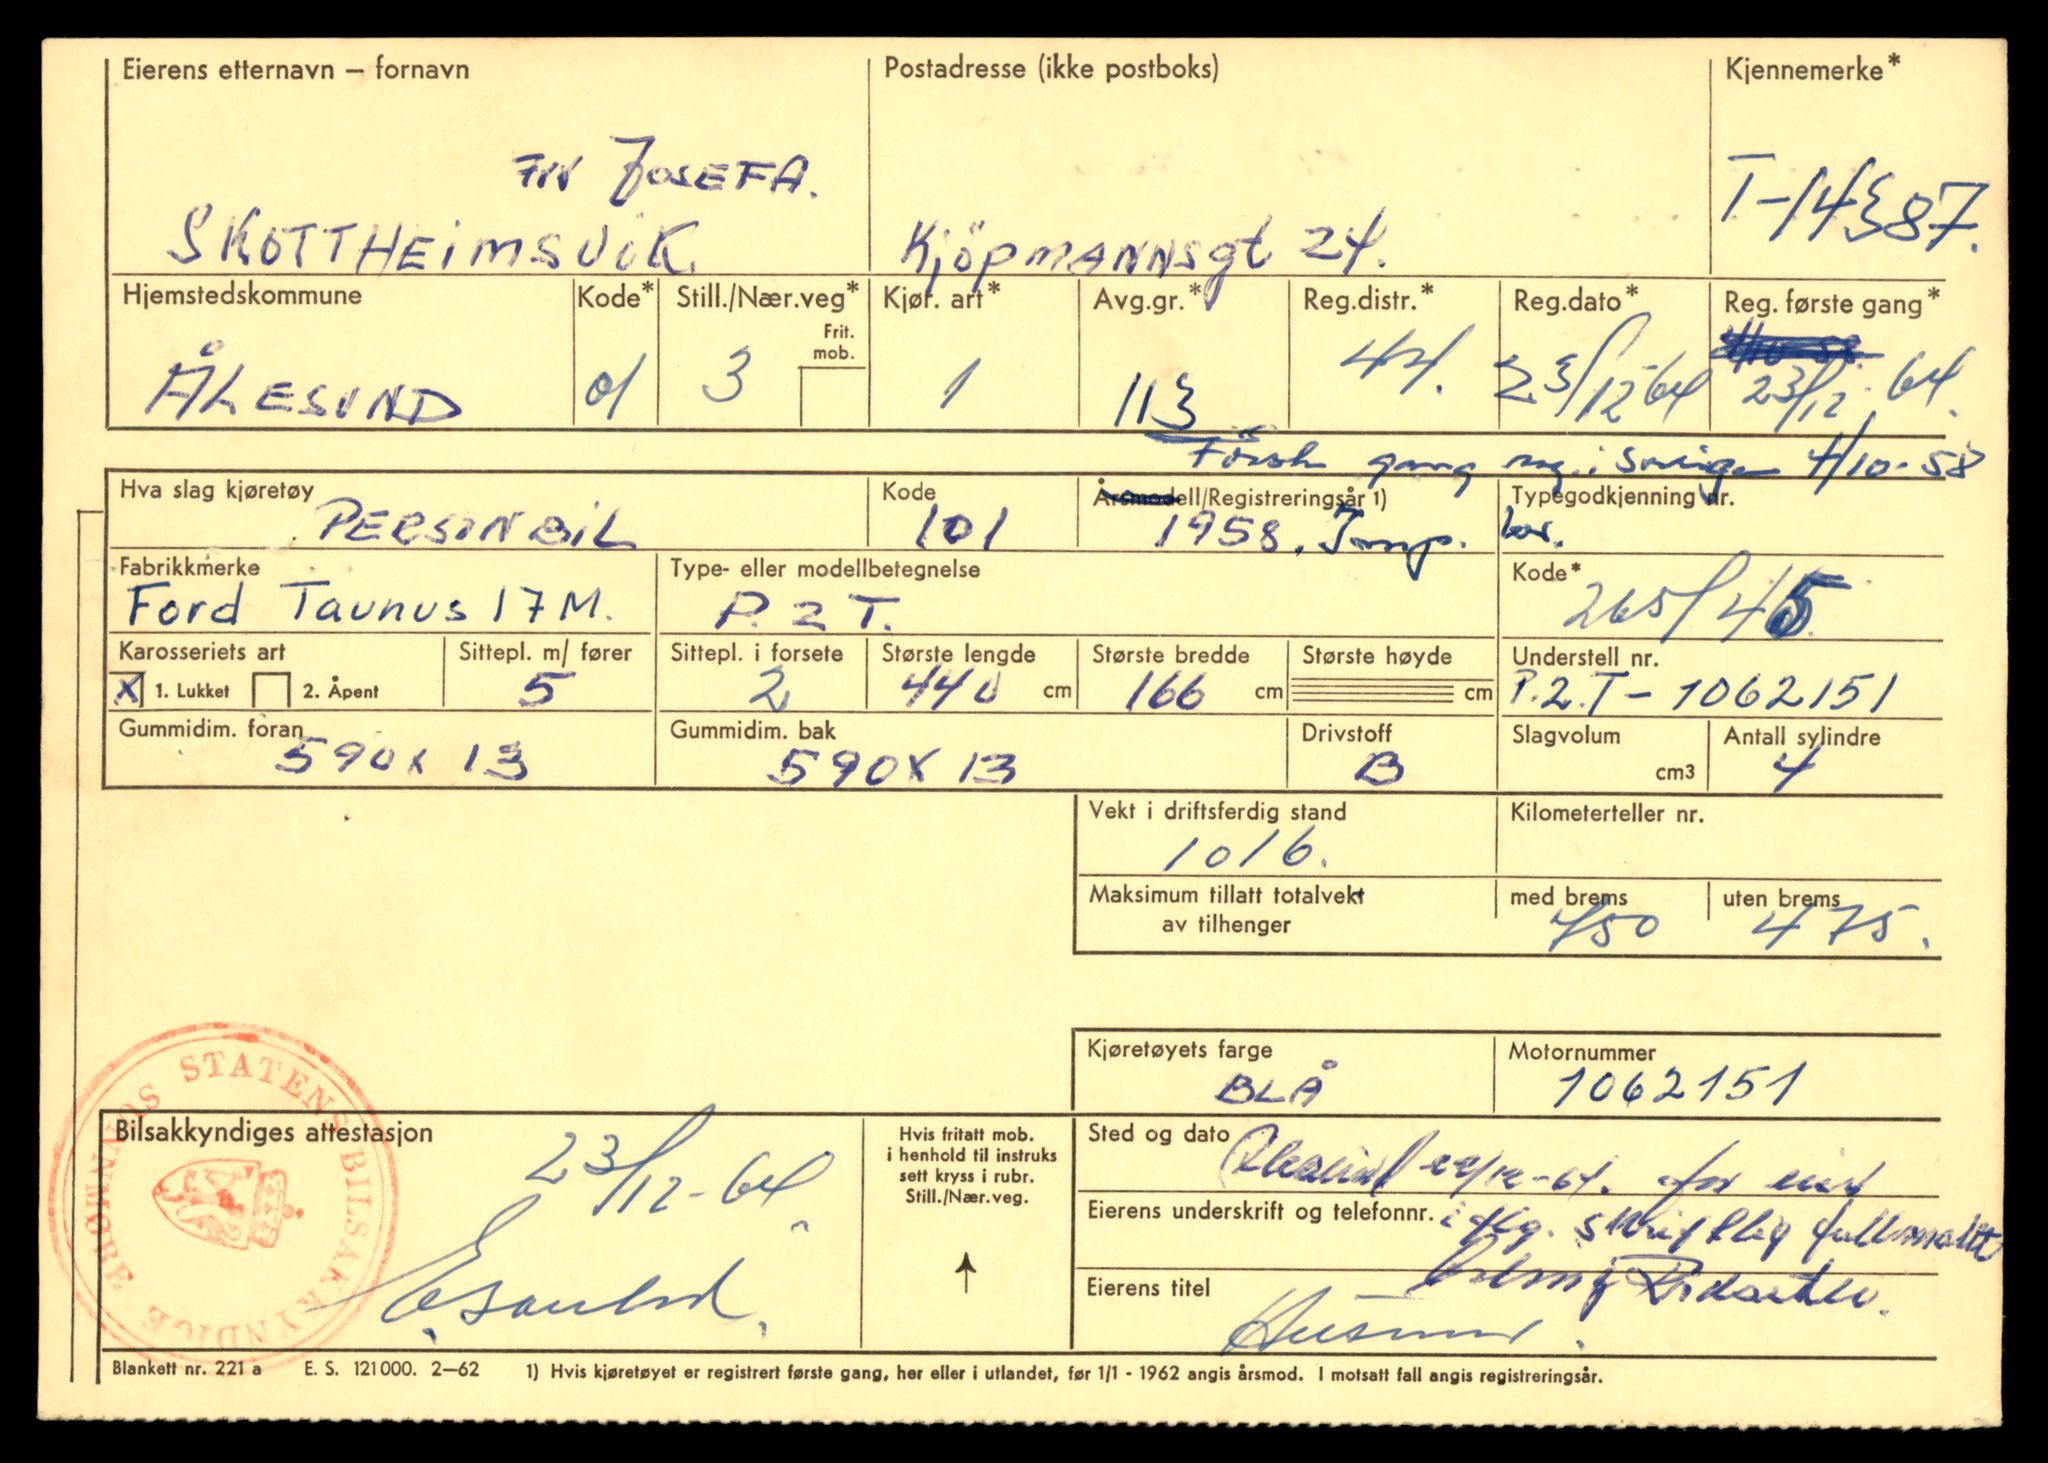 Eierens etternavn – fornavn Postadresse (ikke postboks) Kjennemerke*
FRU JOSEFA.
SKOTTHEIMSVIK Kjöpmannsgt 24. T-14387.
Hjemstedskommune Kode* Still./Nær.veg* Kjør. art* Avg.gr.* Reg.distr.* Reg.dato* Reg. første gang*
Frit. mob.
ÅLESUND 01 3 1 113 44. 23/12 64 23/12 64.
Först gang reg. i Sverige 4/10-58
Hva slag kjøretøy Kode Årsmodell/Registreringsår 1) Typegodkjenning nr.
PERSONBIL 101 1958. Imp.
Fabrikkmerke Type- eller modellbetegnelse Kode*
Ford Taunus 17M. P. 2 T. 265/45
Karosseriets art Sittepl. m/ fører Sittepl. i forsete Største lengde Største bredde Største høyde Understell nr.
X 1. Lukket 2. Åpent 5 2 440 cm 166 cm cm P.2.T-1062151
Gummidim. foran Gummidim. bak Drivstoff Slagvolum Antall sylindre
590x13 590x13 B cm3 4
Vekt i driftsferdig stand Kilometerteller nr.
1016.
Maksimum tillatt totalvekt med brems uten brems
av tilhenger 750 475.
Kjøretøyets farge Motornummer
BLÅ 1062151
STATENS BILSAKKYNDIGE MØRE ROMN
Bilsakkyndiges attestasjon 23/12-64. Hvis fritatt mob. Sted og dato
i henhold til instruks Ålesund 22/12-64. for eier
sett kryss i rubr.
Still./Nær.veg.
Eierens underskrift og telefonnr. i flg. skriftlig fullmakt
Eierens titel Husmor.
Blankett nr. 221 a E. S. 121000. 2–62 1) Hvis kjøretøyet er registrert første gang, her eller i utlandet, før 1/1 - 1962 angis årsmod. I motsatt fall angis registreringsår.